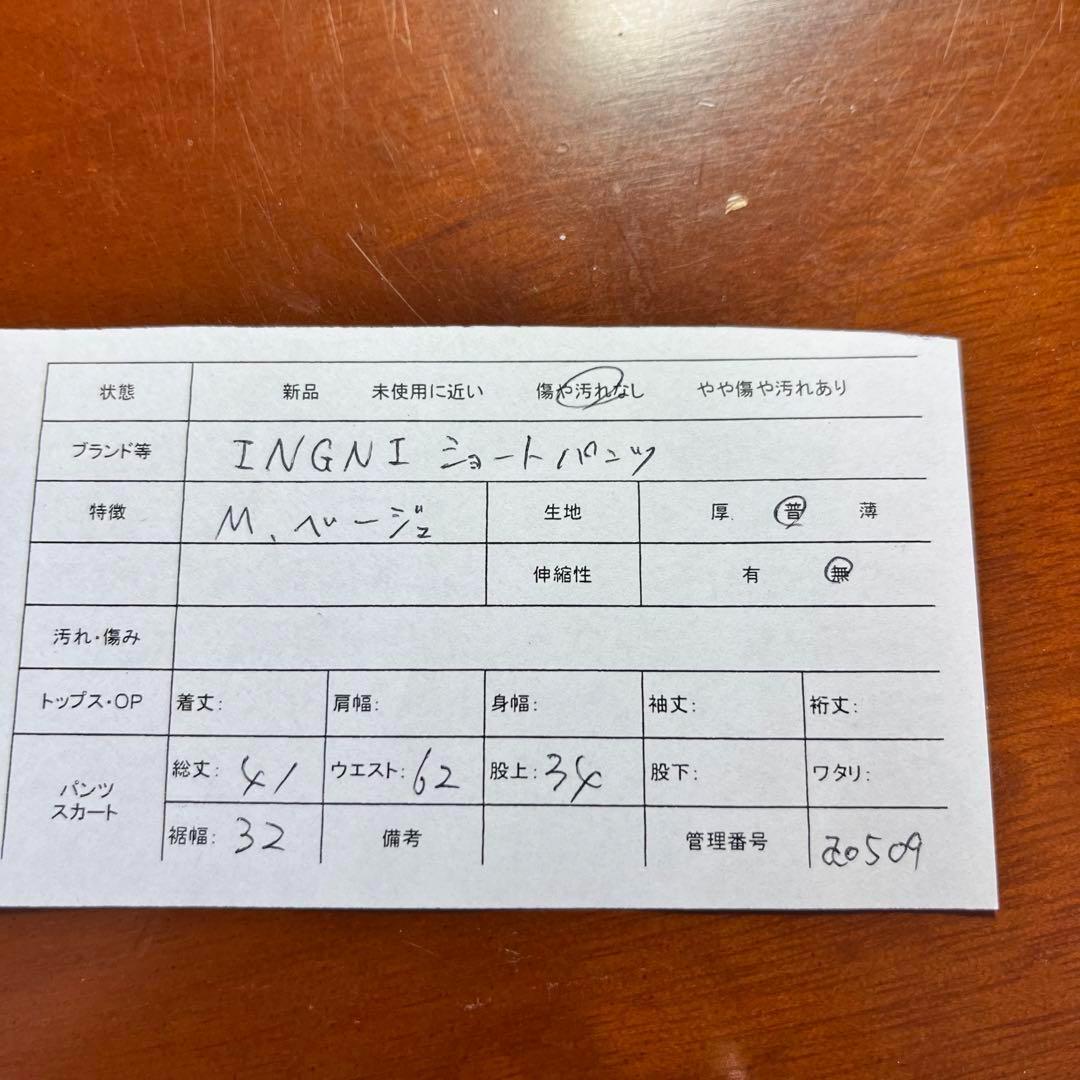 状態 新品 未使用に近い 傷や汚れなし やや傷や汚れあり
ブランド等 INGNI ショートパンツ
特徴 M、ベージュ 生地 厚 普 薄
伸縮性 有 無
汚れ・傷み
トップス・OP 着丈: 肩幅: 身幅: 袖丈: 裄丈:
パンツ スカート 総丈: 41 ウエスト: 62 股上: 34 股下: ワタリ:
裾幅: 32 備考 管理番号